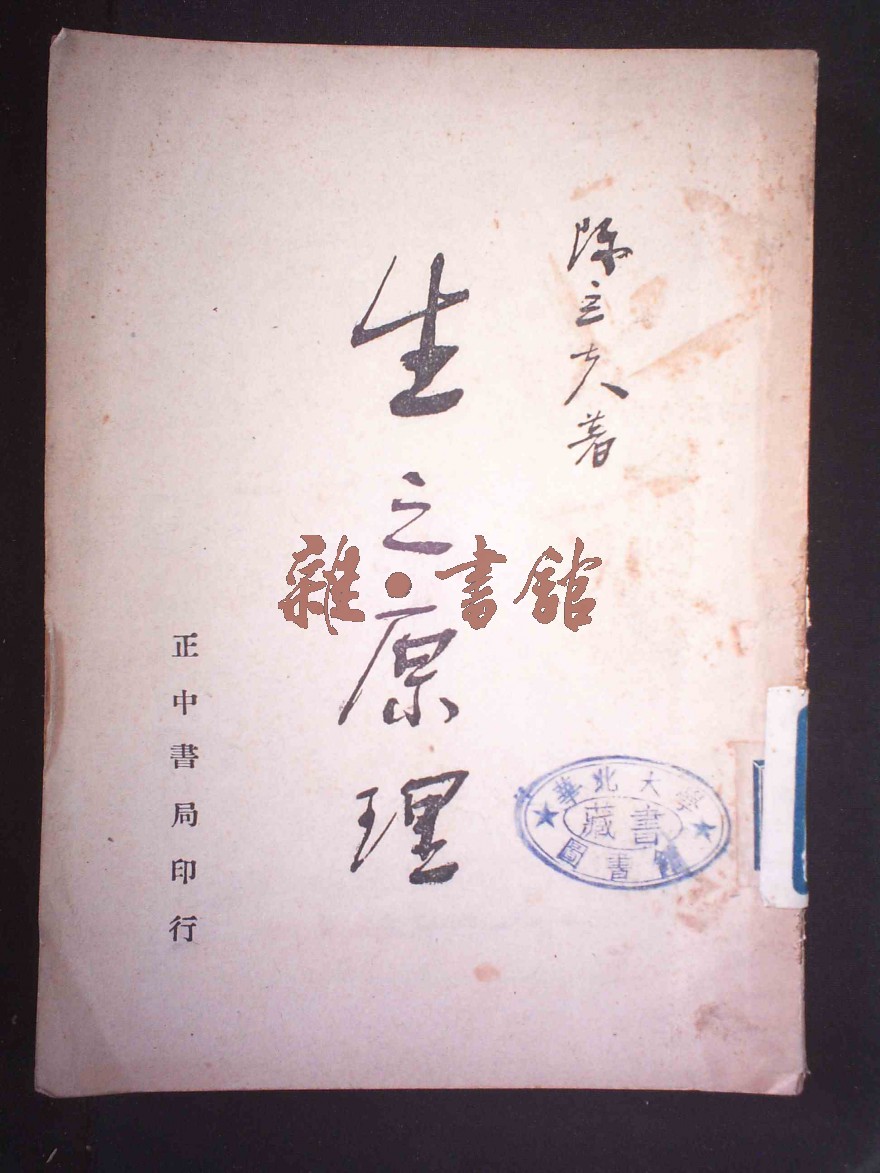 陈立夫著
生之原理
正中書局印行
雜·書館
華北大學
藏書
圖書館